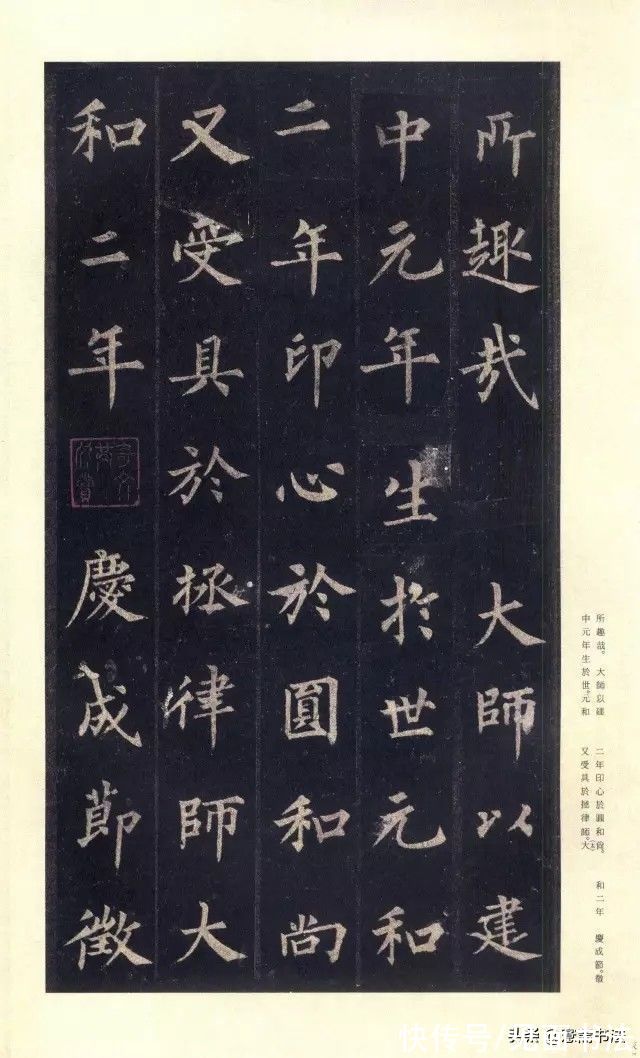 所趣哉 大師以建
中元年生於世元和
二年印心於圓和尚
又受具於拯律師大
和二年 慶成節徵
所趣哉。大師以建
中元年生於世。元和
二年印心於圓和尚。
又受具於拯律師。大
和二年 慶成節。徵
快传号/
头条
书法